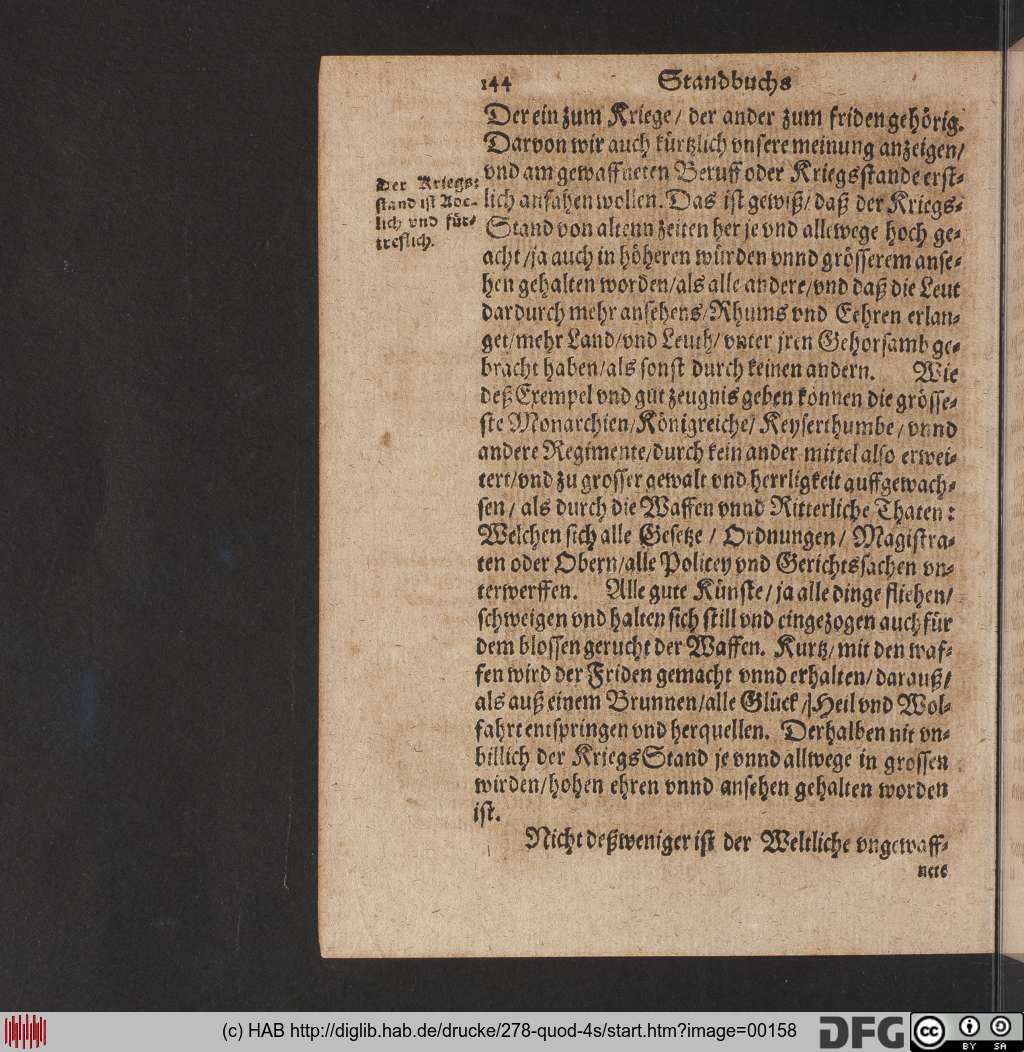 144 Standbuchs
Der ein zum Kriege/ der ander zum friden gehörig.
Darvon wir auch kürtzlich vnsere meinung anzeigen/
vnd am gewaffneten Beruff oder Kriegsstande erst-
lich anfahen wollen. Das ist gewiß/ daß der Kriegs-
Stand von altenn zeiten her je vnd allewege hoch ge-
acht/ja auch in höheren würden vnnd grösserem anse-
hen gehalten worden/als alle andere/vnd daß die Leut
dardurch mehr ansehens/Rhums vnd Eehren erlan-
get/mehr Land/vnd Leuth/vnter jren Gehorsamb ge-
bracht haben/als sonst durch keinen andern. Wie
deß Exempel vnd gut zeugnis geben können die grösse-
ste Monarchien/Königreiche/Keyserthumbe/vnnd
andere Regimente/durch kein ander mittel also erwei-
tert/vnd zu grosser gewalt vnd herrligkeit auffgewach-
sen/ als durch die Waffen vnnd Ritterliche Thaten:
Welchen sich alle Gesetze/ Ordnungen/ Magistra-
ten oder Obern/alle Politey vnd Gerichtssachen vn-
terwerffen. Alle gute Künste/ja alle dinge fliehen/
schweigen vnd halten sich still vnd eingezogen auch für
dem blossen gerucht der Waffen. Kurtz/mit den waf-
fen wird der Friden gemacht vnnd erhalten/darauß/
als auß einem Brunnen/alle Glück/Heil vnd Wol-
fahrt entspringen vnd herquellen. Derhalben nit vn-
billich der KriegsStand je vnnd allwege in grossen
wirden/hohen ehren vnnd ansehen gehalten worden
ist.
Nicht deßweniger ist der Weltliche vngewaff-
nets
Der Kriegs-
stand ist Nöt-
lich vnd für-
treflich.
(c) HAB http://diglib.hab.de/drucke/278-quod-4s/start.htm?image=00158
DFG
cc
BY SA